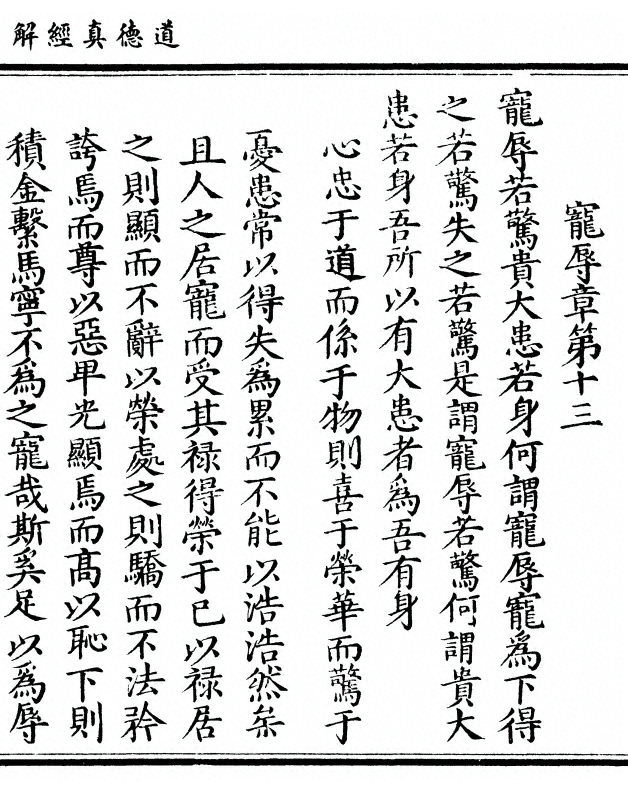 道德真經解
寵辱章第十三
寵辱若驚貴大患若身何謂寵辱寵為下得
之若驚失之若驚是謂寵辱若驚何謂貴大
患若身吾所以有大患者為吾有身
心忠于道而係于物則喜于榮華而驚于
憂患常以得失為累而不能以浩浩然矣
且人之居寵而受其禄得榮于已以禄居
之則顯而不辭以榮處之則驕而不法矜
誇焉而尊以惡卑光顯焉而髙以恥下則
積金繫馬寧不為之寵哉斯奚足以為辱